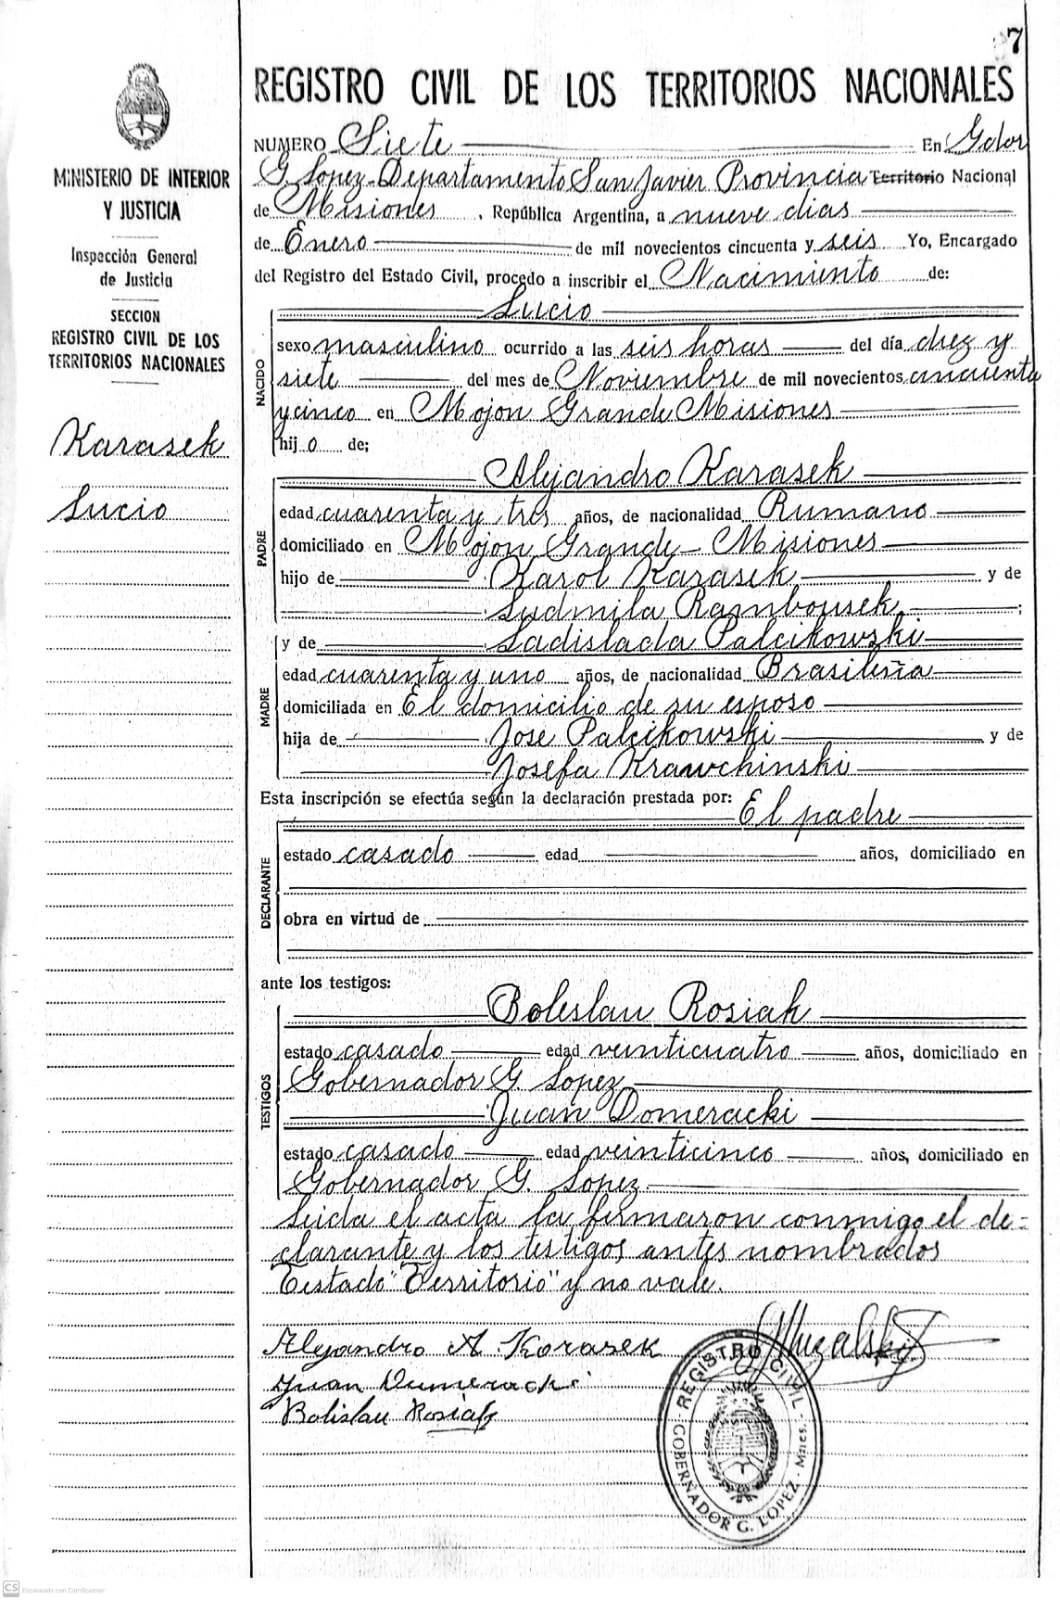 7
REGISTRO CIVIL DE LOS TERRITORIOS NACIONALES
NUMERO Siete En Gdor
G. Lopez-Departamento San Javier Provincia Territorio Nacional
de Misiones, República Argentina, a nueve dias
de Enero de mil novecientos cincuenta y seis Yo, Encargado
del Registro del Estado Civil, procedo a inscribir el Nacimiento de:
MINISTERIO DE INTERIOR
Y JUSTICIA
Inspección General
de Justicia
SECCION
REGISTRO CIVIL DE LOS
TERRITORIOS NACIONALES
Karasek
Lucio
NACIDO
Lucio
sexo masculino ocurrido a las seis horas del día diez y
siete del mes de Noviembre de mil novecientos cincuenta
y cinco en Mojon Grande Misiones
hijo de;
PADRE
Alejandro Karasek
edad cuarenta y tres años, de nacionalidad Rumano
domiciliado en Mojon Grande - Misiones
hijo de Karol Karasek y de
Ludmila Rambousek;
MADRE
y de Ladislada Palcikowski
edad cuarenta y uno años, de nacionalidad Brasileña
domiciliada en El domicilio de su esposo
hija de Jose Palcikowski y de
Josefa Krawchinski
Esta inscripción se efectúa según la declaración prestada por: El padre
DECLARANTE
estado casado edad años, domiciliado en
obra en virtud de
ante los testigos:
TESTIGOS
Boleslau Rosiak
estado casado edad veinticuatro años, domiciliado en
Gobernador G. Lopez
Juan Domeracki
estado casado edad veinticinco años, domiciliado en
Gobernador G. Lopez
Leida el acta la firmaron conmigo el de-
clarante y los testigos antes nombrados
Testado "Territorio" y no vale.
Alejandro A. Korasek
Juan Dumeracki
Bolislau Rosiak
REGISTRO CIVIL - Mnes. - GOBERNADOR G. LOPEZ
CS Escaneado con CamScanner